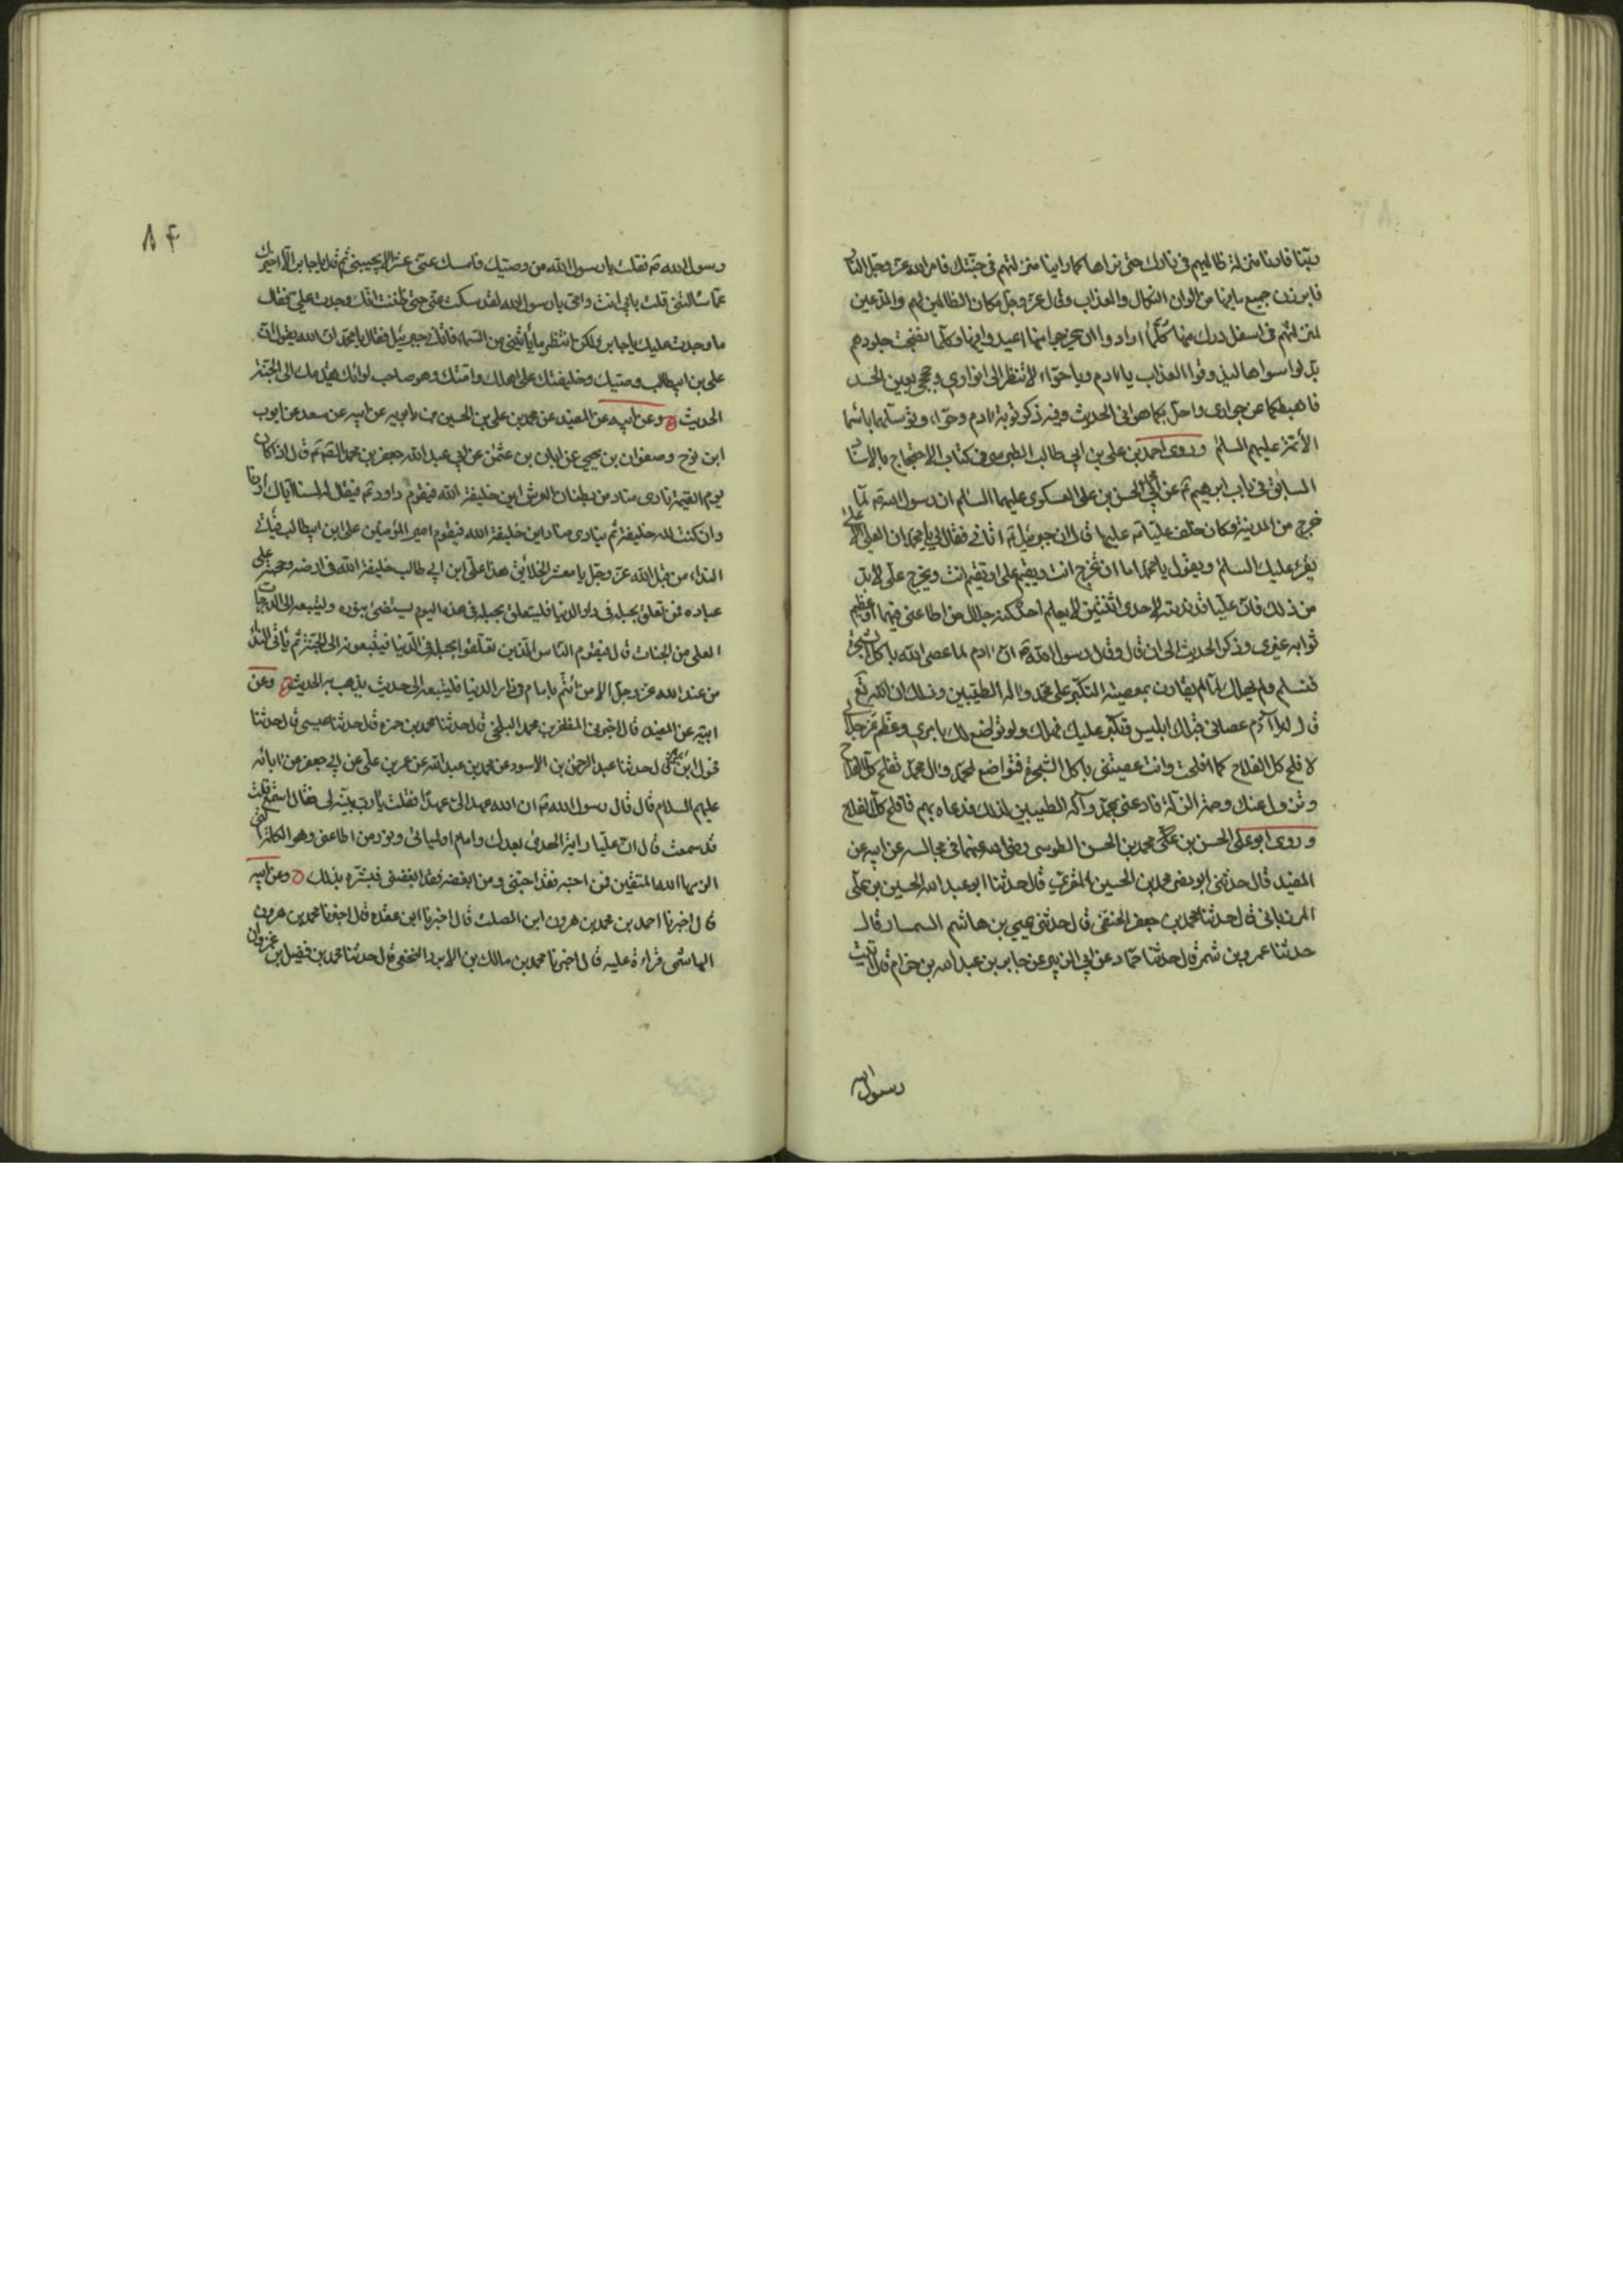 ربنا فارنا منزلة ظالميهم في نارك حتى نراها كما راينا منزلتهم في جنتك فامر الله عز وجل النار
فابرزت جميع ما فيها من الوان النكال والعذاب وقال عز وجل مكان الظالمين لهم والمدعين
لمنزلتهم في اسفل درك منها كلما ارادوا ان يخرجوا منها اعيدوا فيها وكلما نضجت جلودهم
بدلوا سواها ليذوقوا العذاب يا ادم ويا حواء لا تنظرا الى انواري وحججي بعين الحسد
فاهبطكما عن جواري واحل بكما هواني الحديث وفيه ذكر توبة ادم وحواء وتوسلهما باسماء
الأئمة عليهم السلم وروى احمد بن علي بن ابي طالب الطبرسي في كتاب الاحتجاج بالاسناد
السابق في باب ابرهيم عن ابي محمد الحسن بن علي العسكري عليهما السلم ان رسول الله لما
خرج من المدينة وكان خلف عليا عليها قال ان جبرئيل اتاني فقال لي يا محمد ان العلي الاعلى
يقرء عليك السلم ويقول يا محمد اما ان تخرج انت ويقيم علي او تقيم انت ويخرج علي لا بد
من ذلك فان عليا قد ندبته لاحدى اثنتين لا يعلم احد كنه جلال من اطاعني فيهما وعظيم
ثوابه غيري وذكر الحديث الى ان قال وقال رسول الله ان ادم لما عصى الله باكل الشجرة
فسلم ولم يهلك لما لم يقارن بمعصيته التكبر على محمد واله الطيبين وذلك ان الله تع
قال له يا آدم عصاني فيك ابليس وتكبر عليك فهلك ولو تواضع لك بامري وعظم عز جلالي
لافلح كل الفلاح كما افلحت وانت عصيتني باكل الشجرة فتواضع لمحمد وال محمد تفلح كل الفلاح
وتزول عنك وصمة الزلة فادعني بمحمد وآله الطيبين لذلك فدعاه بهم فافلح كل الفلاح
وروى ابو علي الحسن بن محمد بن الحسن الطوسي رضي الله عنهما في مجالسه عن ابيه عن
المفيد قال حدثني ابو نصر محمد بن الحسين المقري قال حدثنا ابو عبد الله الحسين بن علي
المرزباني قال حدثنا محمد بن جعفر الحنفي قال حدثني يحيي بن هاشم السمسار قال
حدثنا عمرو بن شمر قال حدثنا حماد عن ابي الزبير عن جابر بن عبد الله بن حزام قال اتيت
رسول الله
٨٤
رسول الله فقلت يا رسول الله من وصيك فامسك عني عشرا لا يجيبني ثم قال يا جابر الا اخبرك
عما سالتني قلت بابي انت وامي يا رسول الله لقد سكت عني حتى ظننت انك وجدت علي فقال
ما وجدت عليك يا جابر ولكن انتظر ما ياتيني من السماء فاتاني جبرئيل فقال يا محمد ان الله يقول ان
علي بن ابيطالب وصيك وخليفتك على اهلك وامتك وهو صاحب لوائك يقدمك الى الجنة
الحديث وعن ابيه عن المفيد عن محمد بن علي بن الحسين بن بابويه عن ابيه عن سعد عن ايوب
ابن نوح وصفوان بن يحيى عن ابان بن عثمن عن ابي عبد الله جعفر بن محمد قال اذا كان
يوم القيمة نادى مناد من بطنان العرش اين خليفة الله فيقوم داود فيقال له لسنا اياك اردنا
وان كنت لله خليفة ثم ينادي مناد اين خليفة الله فيقوم امير المؤمنين علي ابن ابيطالب فياتي
النداء من قبل الله عز وجل يا معشر الخلائق هذا علي ابن ابي طالب خليفة الله في ارضه وحجته على
عباده فمن تعلق بحبله في دار الدنيا فليتعلق بحبله في هذا اليوم ليستضئ بنوره وليتبعه الى الدرجات
العلى من الجنات قال فيقوم الناس الذين تعلقوا بحبله في الدنيا فيتبعونه الى الجنة ثم ياتي النداء
من عند الله عز وجل الا من ائتم بامام في دار الدنيا فليتبعه الى حديث يذهب به الحديث وعن
ابيه عن المفيد قال اخبرني المظفر بن محمد البلخي قال حدثنا محمد بن قال حدثنا عيسى قال حدثنا
مخول ابن قال حدثنا عبد الرحمن بن الاسود عن محمد بن عبد الله عن عمر بن علي عن ابي جعفر عن ابائه
عليهم السلام قال قال رسول الله ان الله عهد الى عهدا فقلت يا رب بينه لي فقال اسمع قلت
قد سمعت قال ان عليا راية الهدى بعدك وامام اوليائي ونور من اطاعني وهو الكلمة التي
الزمها الله المتقين فمن احبه فقد احبني ومن ابغضه فقد ابغضني فبشره بذلك وعن ابيه
قال اخبرنا احمد بن محمد بن هرون ابن الصلت قال اخبرنا ابن عقدة قال اخبرنا محمد بن هرون
الهاشمي قراءة عليه قال اخبرنا محمد بن مالك بن الابرد النخعي قال حدثنا محمد بن فضيل بن غزوان